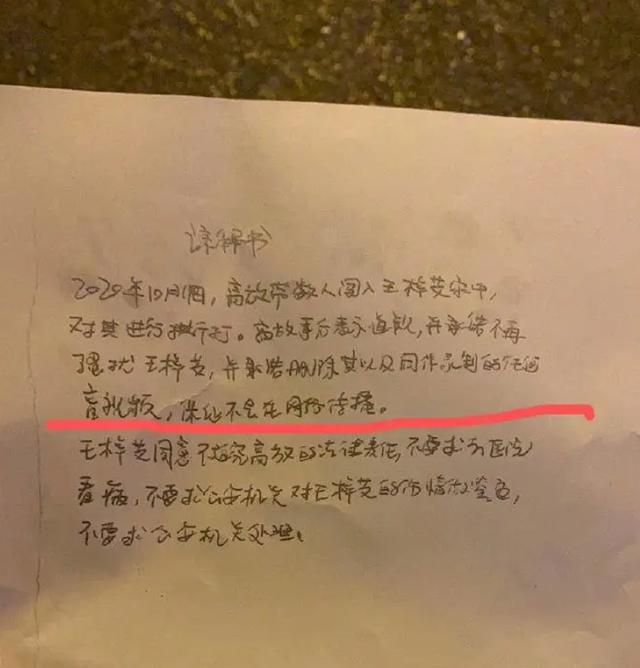 谅解书
2020年10月1日，高放带数人闯入王梓芠家中，
对其进行殴打。高放事后表示道歉，并承诺不再
骚扰王梓芠，并承诺删除其以及同伴录制的任何
音视频，保证不会在网络传播。
王梓芠同意不追究高放的法律责任，不要求去医院
看病，不要求公安机关对王梓芠的伤情做鉴定，
不要求公安机关处理。